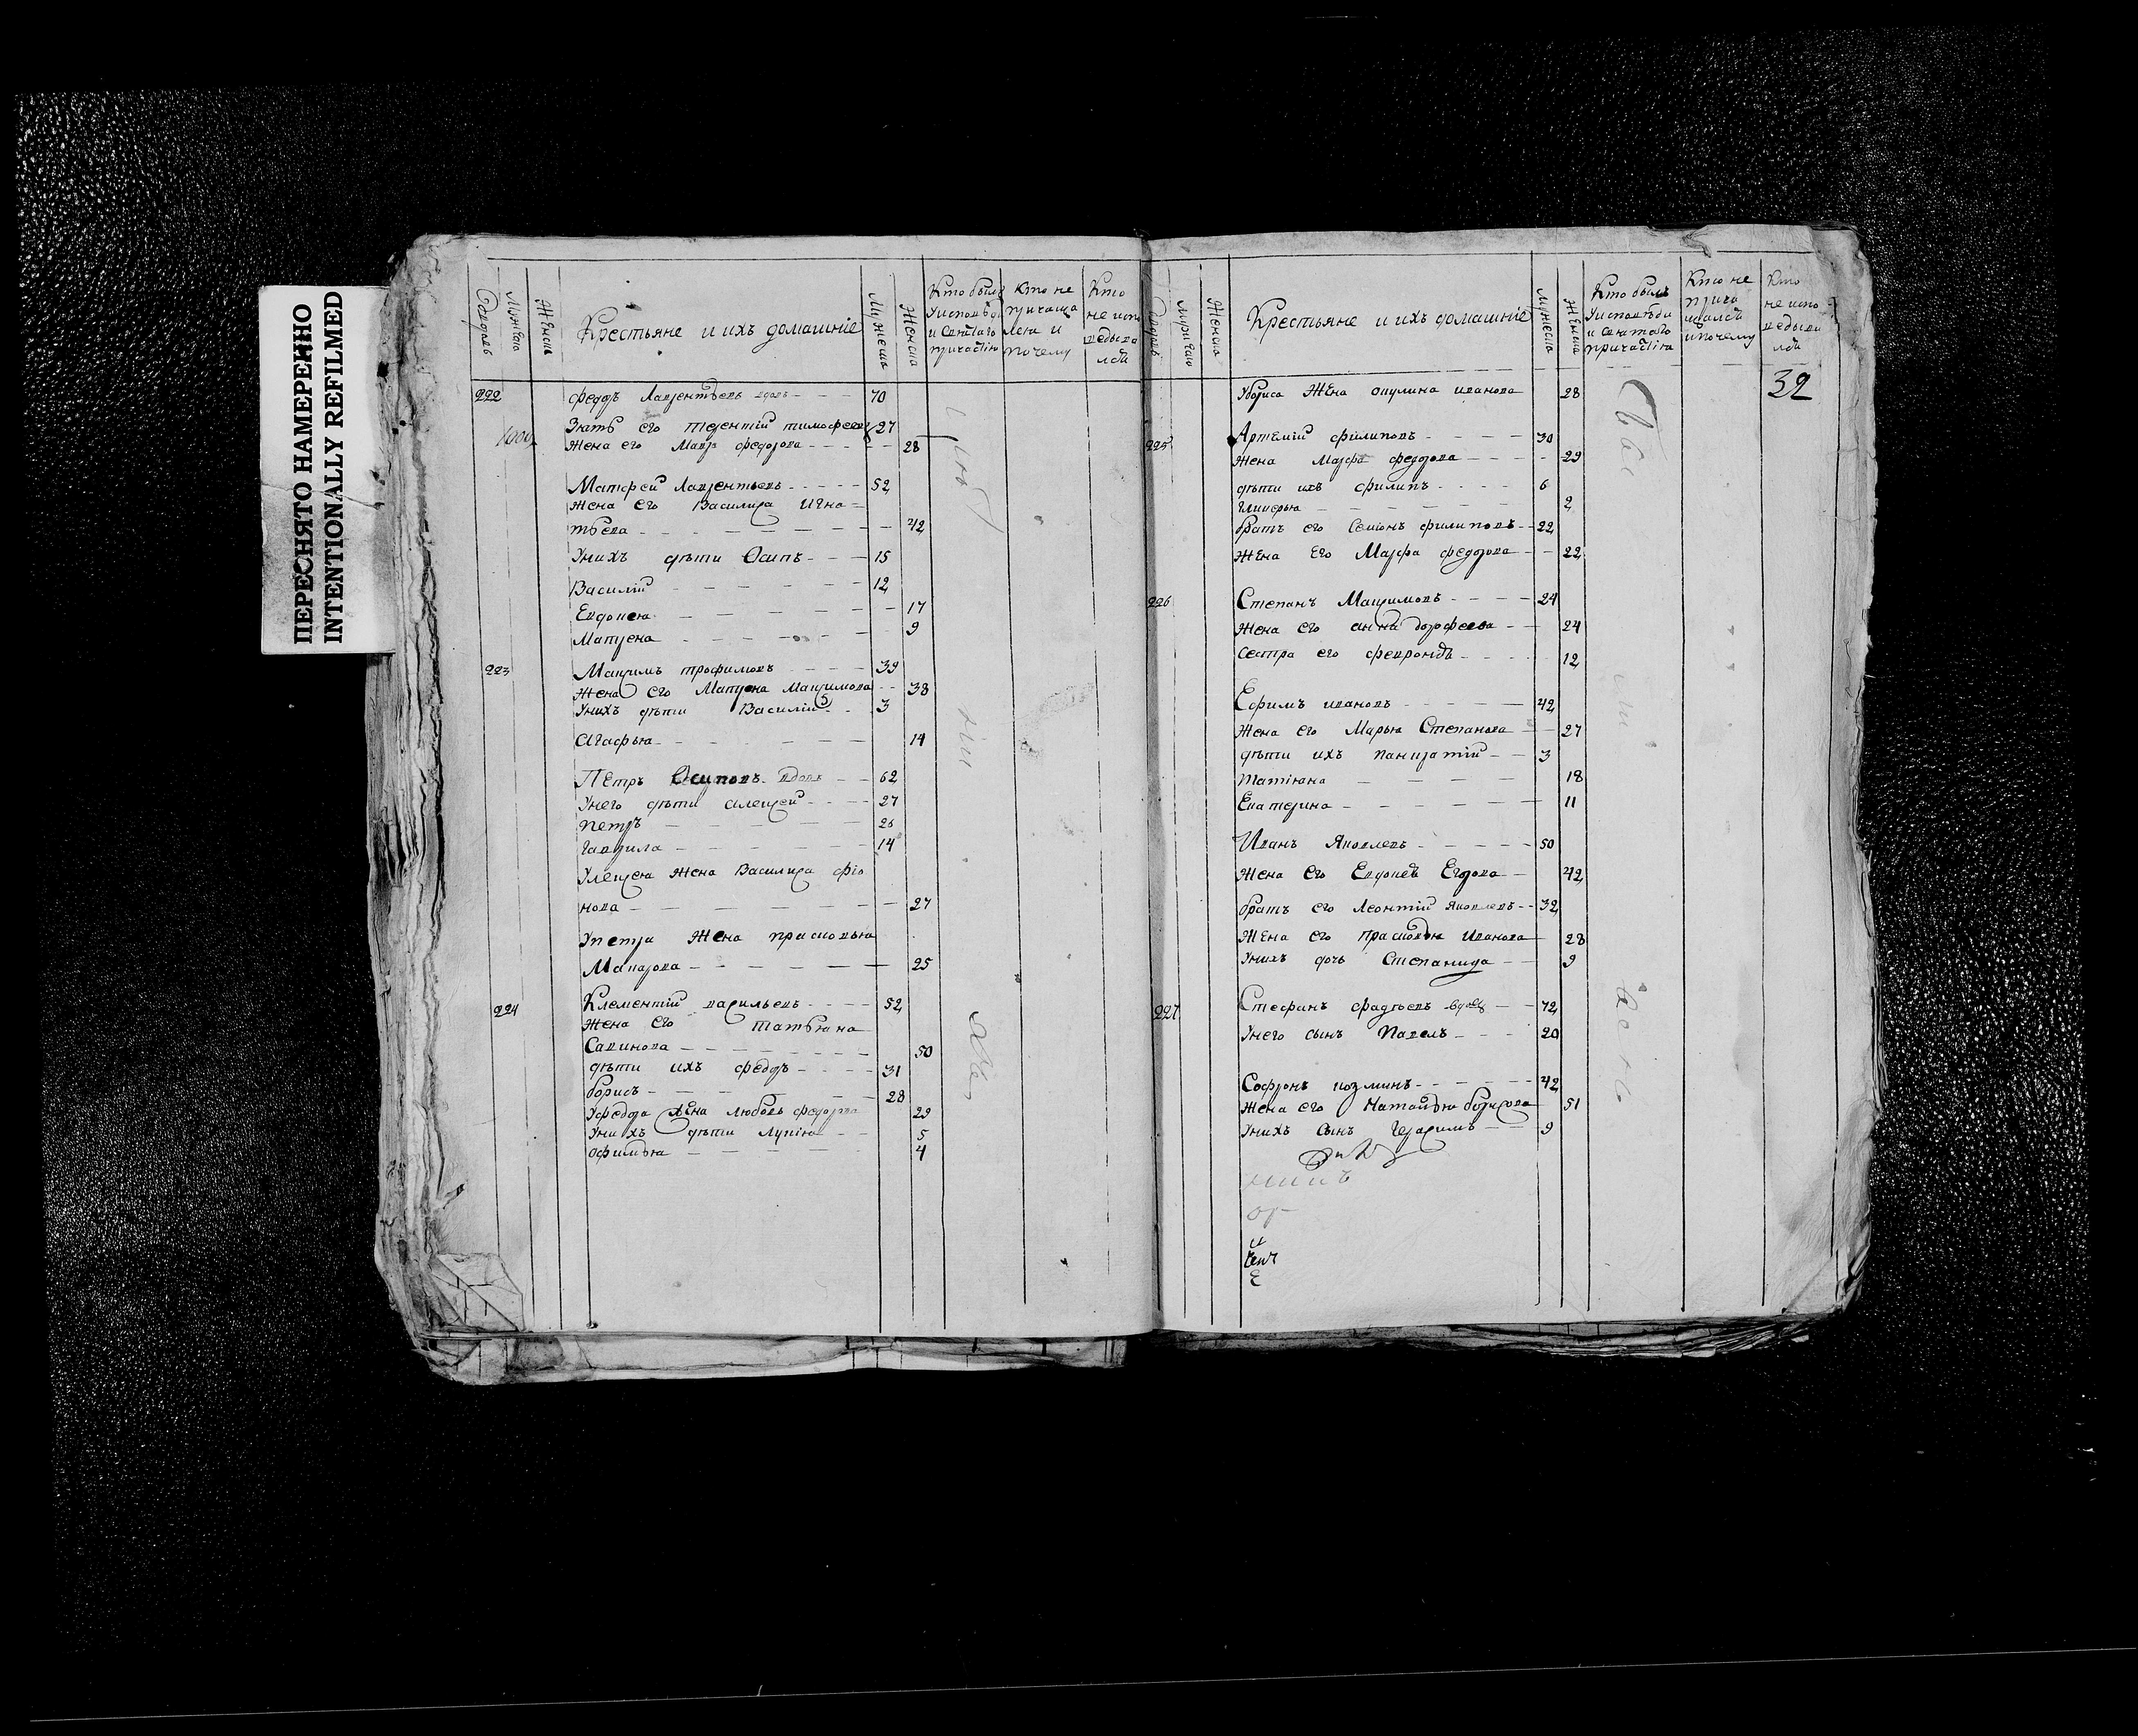 ПЕРЕСНЯТО НАМЕРЕННО
INTENTIONALLY REFILMED
Крестьяне и ихъ домашніе
Мужеска
Женска
Кто былъ
у исповѣди
и Святаго
причастія
Кто не
причаща
лся и
почему
Кто
не испо
ведыва
лся
222 Федоръ Лаврентьевъ вдовъ 70
Зять его терентій тимофеевъ 27
Жена его Мавр федорова 28
Матфей Лаврентьевъ 52
Жена его Василиса Игна
тьева 42
У нихъ дѣти Осипъ 15
Василій 12
Евдокея 17
Матрена 9
223 Максимъ трофимовъ 39
Жена его Матрена Максимова 38
У нихъ дѣти Василій 3
Агафья 14
Петръ Осиповъ вдовъ 62
У него дѣти алексей 27
Петръ 26
Гаврила 14
У алексея Жена Василиса фио
нова 27
У петра Жена прасковья
Макарова 25
224 Клементій васильевъ 52
Жена его татьяна
Савинова 50
дѣти ихъ федоръ 31
борисъ 28
У федора жена любовь федорова 29
У нихъ дѣти Лукія 5
офимья 4
Крестьяне и ихъ домашніе
Мужеска
Женска
Кто былъ
у исповѣди
и Святаго
причастія
Кто не
прича
щался
и почему
Кто
не испо
ведыва
лся
32
У бориса Жена акулина иванова 28
225 Артемій филиповъ 30
Жена Марфа федорова 29
дѣти ихъ филипъ 6
Гликерья 2
братъ его Семіонъ филиповъ 22
Жена его Марфа федорова 22
226 Степанъ Максимовъ 24
Жена его анна дорофеева 24
Сестра его феврониѣ 12
Ефимъ ивановъ 42
Жена его Марья Степанова 27
дѣти ихъ панкратій 3
татіяна 18
Екатерина 11
Иванъ Яковлевъ 50
Жена его Евдокеѣ Егорова 42
братъ его Леонтій Яковлевъ 32
Жена его прасковья Иванова 28
У нихъ дочь Степанида 9
227 Стефанъ фадѣевъ вдовъ 72
У него сынъ Павелъ 20
Софронъ козминъ 42
Жена его Наталья борисова 51
У нихъ Сынъ Герасимъ 9